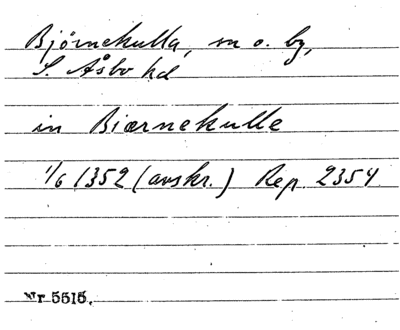 Bjørnekulla, sn o. by,
S. Åsbo hd
in Biærnekulle
1/6 1352 (avskr.) Rep. 2354
Nr 5515.